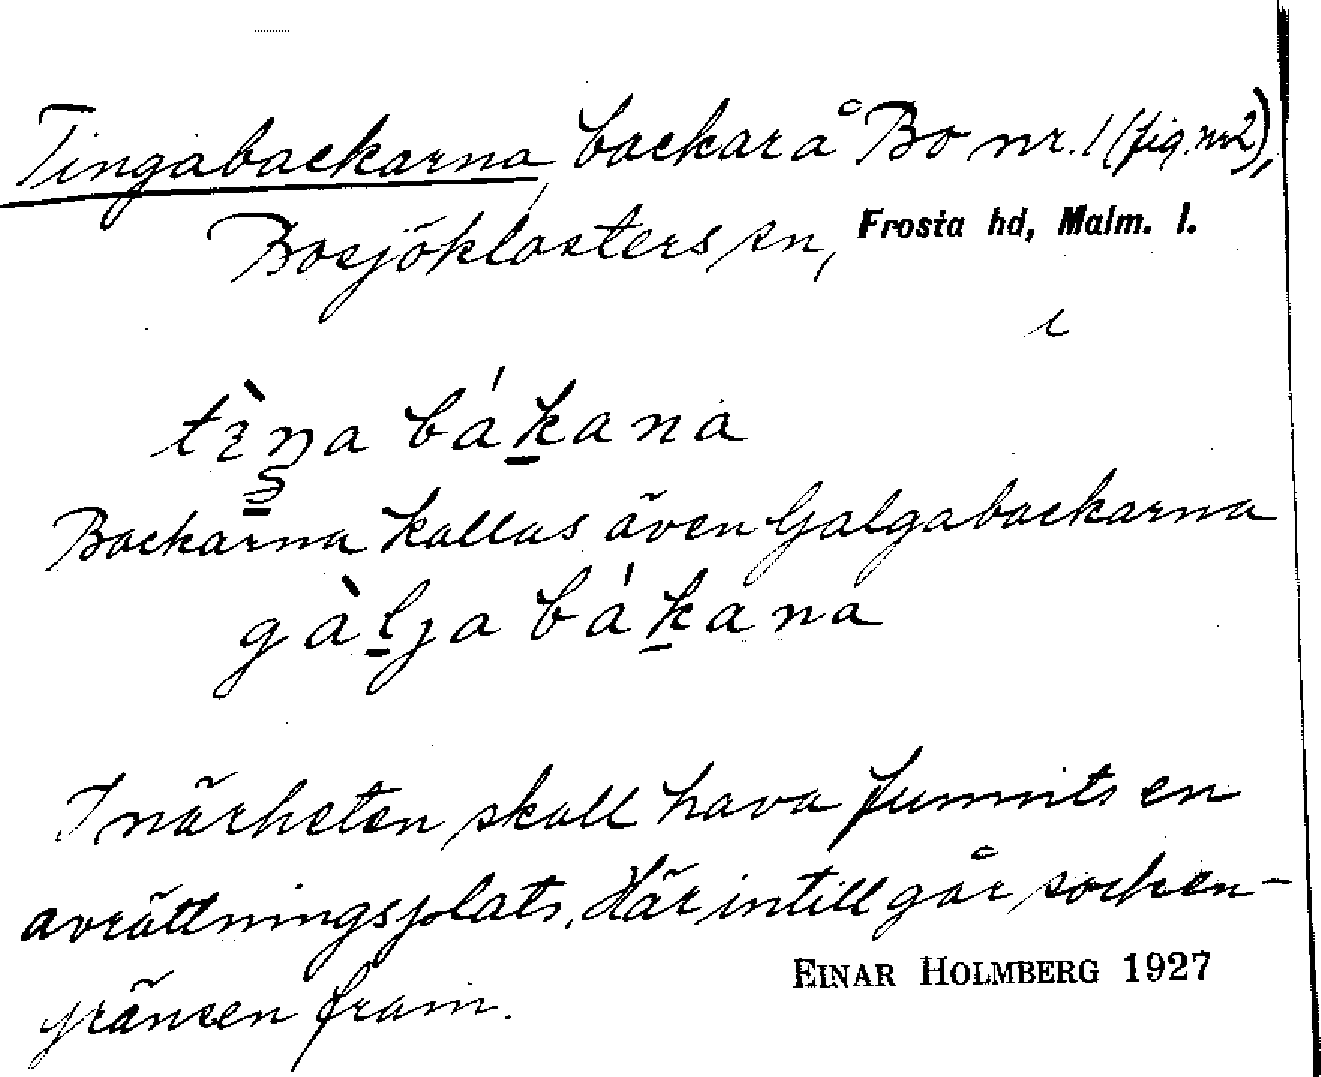 Tingabackarna, backar å Bo nr. 1 (fig. nr 2),
Bosjöklosters sn, Frosta hd, Malm. l.
tèŋa bákana
Backarna kallas även Galgabackarna
gàlja bákana
I närheten skall hava funnits en
avrättningsplats. Här intill går socken-
gränsen fram.
EINAR HOLMBERG 1927